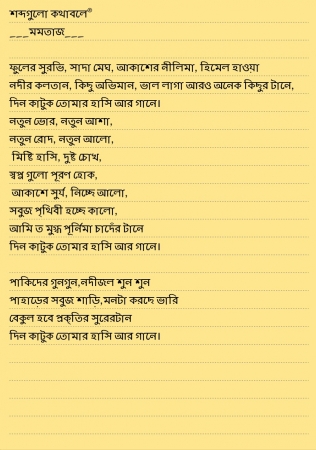 শব্দগুলো কথাবলে®
___মমতাজ___
ফুলের সুরভি, সাদা মেঘ, আকাশের নীলিমা, হিমেল হাওয়া
নদীর কলতান, কিছু অভিমান, ভাল লাগা আরও অনেক কিছুর টানে,
দিন কাটুক তোমার হাসি আর গানে।
নতুন ভোর, নতুন আশা,
নতুন রোদ, নতুন আলো,
মিষ্টি হাসি, দুষ্ট চোখ,
স্বপ্ন গুলো পূরণ হোক,
আকাশে সুর্য, নিচ্ছে আলো,
সবুজ পৃথিবী হচ্ছে কালো,
আমি ত মুগ্ধ পূর্নিমা চাদেঁর টানে
দিন কাটুক তোমার হাসি আর গানে।
পাকিদের গুনগুন,নদীজল শুন শুন
পাহাড়ের সবুজ শাড়ি,মনটা করছে ভারি
বেকুল হবে প্রকৃতির সুরেরটান
দিন কাটুক তোমার হাসি আর গানে।